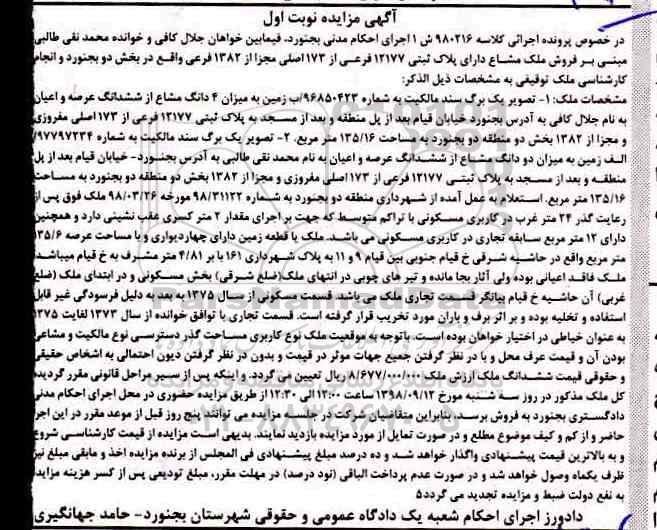 آگهی مزایده نوبت اول
در خصوص پرونده اجرائی کلاسه ۹۸۰۲۱۶ ش ۱ اجرای احکام مدنی بجنورد، فیمابین خواهان جلال کافی و خوانده محمد نقی طالبی
مبنی بر فروش ملک مشاع دارای پلاک ثبتی ۱۲۱۷۷ فرعی از ۱۷۳ اصلی مجزا از ۱۳۸۲ فرعی واقع در بخش دو بجنورد و انجام
کارشناسی ملک توقیفی به مشخصات ذیل الذکر:
مشخصات ملک: ۱- تصویر یک برگ سند مالکیت به شماره ۹۶۸۵۰۴۲۳/ب زمین به میزان ۴ دانگ مشاع از ششدانگ عرصه و اعیان
به نام جلال کافی به آدرس بجنورد خیابان قیام بعد از پل منطقه و بعد از مسجد به پلاک ثبتی ۱۲۱۷۷ فرعی از ۱۷۳ اصلی مفروزی
و مجزا از ۱۳۸۲ بخش دو منطقه دو بجنورد به مساحت ۱۳۵/۱۶ متر مربع. ۲- تصویر یک برگ سند مالکیت به شماره ۹۷۷۹۷۲۳۴/
الف زمین به میزان دو دانگ مشاع از ششدانگ عرصه و اعیان به نام محمد نقی طالبی به آدرس بجنورد- خیابان قیام بعد از پل
منطقه و بعد از مسجد به پلاک ثبتی ۱۲۱۷۷ فرعی از ۱۷۳ اصلی مفروزی و مجزا از ۱۳۸۲ بخش دو منطقه دو بجنورد به مساحت
۱۳۵/۱۶ متر مربع. استعلام به عمل آمده از شهرداری منطقه دو بجنورد به شماره ۹۸/۳۱۱۲۲ مورخه ۹۸/۰۳/۲۶ ملک فوق پس از
رعایت گذر ۲۴ متر غرب در کاربری مسکونی با تراکم متوسط که جهت بر اجرای مقدار ۲ متر کسری عقب نشینی دارد و همچنین
دارای ۱۲ متر مربع سابقه تجاری در کاربری مسکونی می باشد. ملک یا قطعه زمین دارای چهاردیواری و با مساحت عرصه ۱۳۵/۶
متر مربع واقع در حاشیه شرقی خ قیام جنوبی بین قیام ۹ و ۱۱ به پلاک شهرداری ۱۶۱ با بر ۴/۸۱ متر مشرف به خ قیام میباشد.
ملک فاقد اعیانی بوده ولی آثار بجا مانده و تیر های چوبی در انتهای ملک(ضلع شرقی) بخش مسکونی و در ابتدای ملک (ضلع
غربی) آن حاشیه خ قیام بیانگر قسمت تجاری ملک می باشد قسمت مسکونی از سال ۱۳۷۵ به بعد به دلیل فرسودگی غیر قابل
استفاده و تخلیه بوده و بر اثر برف و باران مورد تخریب قرار گرفته است. قسمت تجاری با توافق خوانده از سال ۱۳۷۳ لغایت ۱۳۷۵
به عنوان خیاطی در اختیار خواهان بوده است. باتوجه به موقعیت ملک نوع کاربری مساحت گذر دسترسی نوع مالکیت و مشاعی
بودن آن و قیمت عرف محل و با در نظر گرفتن جمیع جهات موثر در قیمت و بدون در نظر گرفتن دیون احتمالی به اشخاص حقیقی
و حقوقی قیمت ششدانگ ملک ارزش ملک ۸/۶۷۷/۰۰۰/۰۰۰ ریال تعیین می گردد. و اینکه پس از سیر مراحل قانونی مقرر گردیده
کل ملک مذکور در روز سه شنبه مورخ ۱۳۹۸/۰۹/۱۲ ساعت ۱۲:۰۰ الی ۱۲:۳۰ از طریق مزایده حضوری در محل اجرای احکام مدنی
دادگستری بجنورد به فروش برسد. بنابراین متقاضیان شرکت در جلسه مزایده می توانند پنج روز قبل از موعد مقرر در این اجرا
حاضر و از کم و کیف موضوع مطلع و در صورت تمایل از مورد مزایده بازدید نمایند. بدیهی است مزایده از قیمت کارشناسی شروع
و به بالاترین قیمت پیشنهادی واگذار خواهد شد و ده درصد مبلغ پیشنهادی فی المجلس از برنده مزایده اخذ و مابقی مبلغ نیز
ظرف یکماه وصول خواهد شد و در صورت عدم پرداخت الباقی (نود درصد) در مهلت مقرر، مبلغ تودیعی پس از کسر هزینه مزایده
به نفع دولت ضبط و مزایده تجدید می گردد۵
دادورز اجرای احکام شعبه یک دادگاه عمومی و حقوقی شهرستان بجنورد- حامد جهانگیری